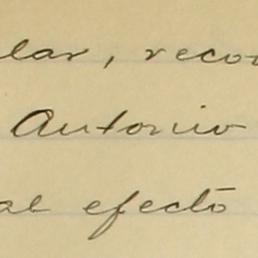 lar, reco
Antonio
al efecto